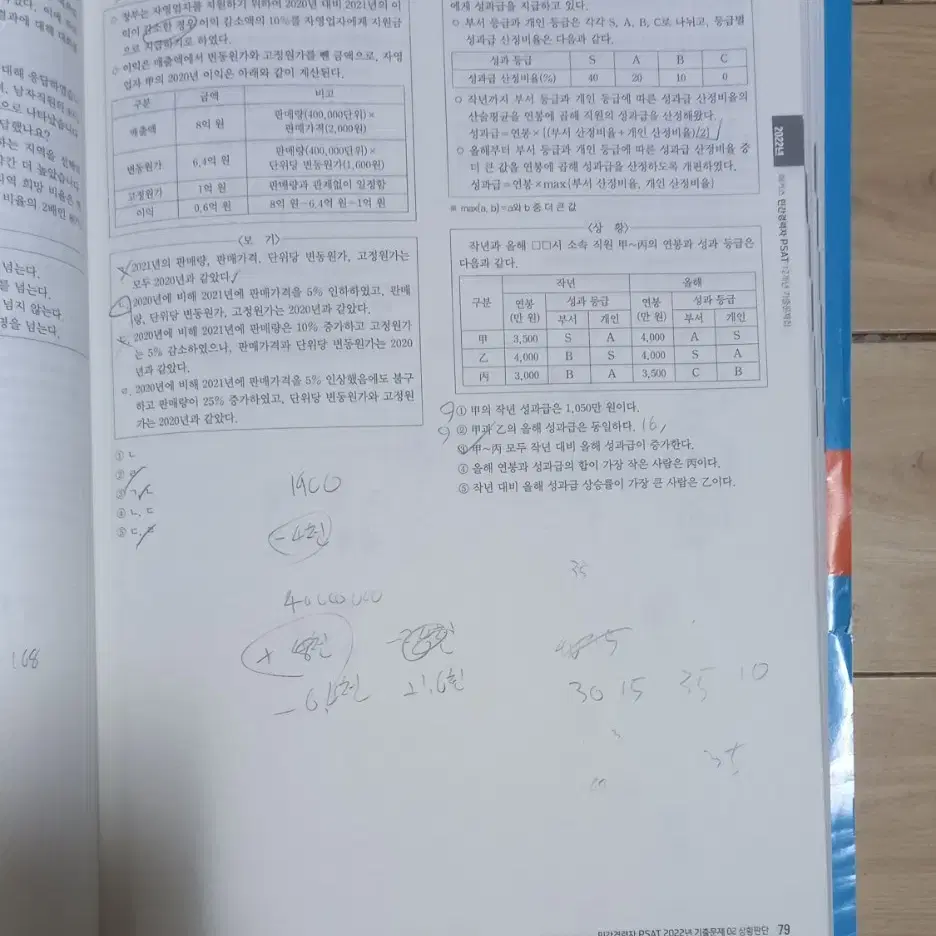 결과에 대해 대화
대해 응답하였습니
며, 남자직원의
으로 나타났습니다
답했나요?
하는 지역을 선택
약간 더 높았습니다
지역 희망 비율은
비율의 2배인
넘는다.
를 넘는다.
넘지 않는다.
정을 넘는다.
168
○ 정부는 자영업자를 지원하기 위하여 2020년 대비 2021년의 이
익이 감소한 경우 이익 감소액의 10%를 자영업자에게 지원금
으로 지급하기로 하였다.
○ 이익은 매출액에서 변동원가와 고정원가를 뺀 금액으로, 자영
업자 甲의 2020년 이익은 아래와 같이 계산된다.
구분 금액 비고
매출액 8억 원 판매량(400,000단위)×
판매가격(2,000원)
변동원가 6.4억 원 판매량(400,000단위)×
단위당 변동원가(1,600원)
고정원가 1억 원 판매량과 관계없이 일정함
이익 0.6억 원 8억 원-6.4억 원-1억 원
〈보 기〉
2021년의 판매량, 판매가격, 단위당 변동원가, 고정원가는
모두 2020년과 같았다.
2020년에 비해 2021년에 판매가격을 5% 인하하였고, 판매
량, 단위당 변동원가, 고정원가는 2020년과 같았다.
2020년에 비해 2021년에 판매량은 10% 증가하고 고정원가
는 5% 감소하였으나, 판매가격과 단위당 변동원가는 2020
년과 같았다.
ㄹ. 2020년에 비해 2021년에 판매가격을 5% 인상했음에도 불구
하고 판매량이 25% 증가하였고, 단위당 변동원가와 고정원
가는 2020년과 같았다.
① ㄴ
② ㄹ
③ ㄱ, ㄴ
④ ㄴ, ㄷ
⑤ ㄷ, ㄹ
1900
-4천
40000,000
30 15 35 10
35
에게 성과급을 지급하고 있다.
○ 부서 등급과 개인 등급은 각각 S, A, B, C로 나뉘고, 등급별
성과급 산정비율은 다음과 같다.
성과 등급 S A B C
성과급 산정비율(%) 40 20 10 0
○ 작년까지 부서 등급과 개인 등급에 따른 성과급 산정비율의
산술평균을 연봉에 곱해 직원의 성과급을 산정해왔다.
성과급=연봉×{(부서 산정비율+개인 산정비율)/2}
○ 올해부터 부서 등급과 개인 등급에 따른 성과급 산정비율 중
더 큰 값을 연봉에 곱해 성과급을 산정하도록 개편하였다.
성과급=연봉×max{부서 산정비율, 개인 산정비율}
※ max{a, b}=a와 b 중 더 큰 값
〈상 황〉
작년과 올해 □□시 소속 직원 甲~丙의 연봉과 성과 등급은
다음과 같다.
구분 작년 올해
연봉(만 원) 성과 등급 연봉(만 원) 성과 등급
부서 개인 부서 개인
甲 3,500 S A 4,000 A S
乙 4,000 B S 4,000 S A
丙 3,000 B A 3,500 C B
① 甲의 작년 성과급은 1,050만 원이다.
② 甲과 乙의 올해 성과급은 동일하다. 16
③ 甲~丙 모두 작년 대비 올해 성과급이 증가한다.
④ 올해 연봉과 성과급의 합이 가장 작은 사람은 丙이다.
⑤ 작년 대비 올해 성과급 상승률이 가장 큰 사람은 乙이다.
2022년
민간경력자 PSAT
민간경력자 PSAT 2022년 기출문제 02 상황판단 79